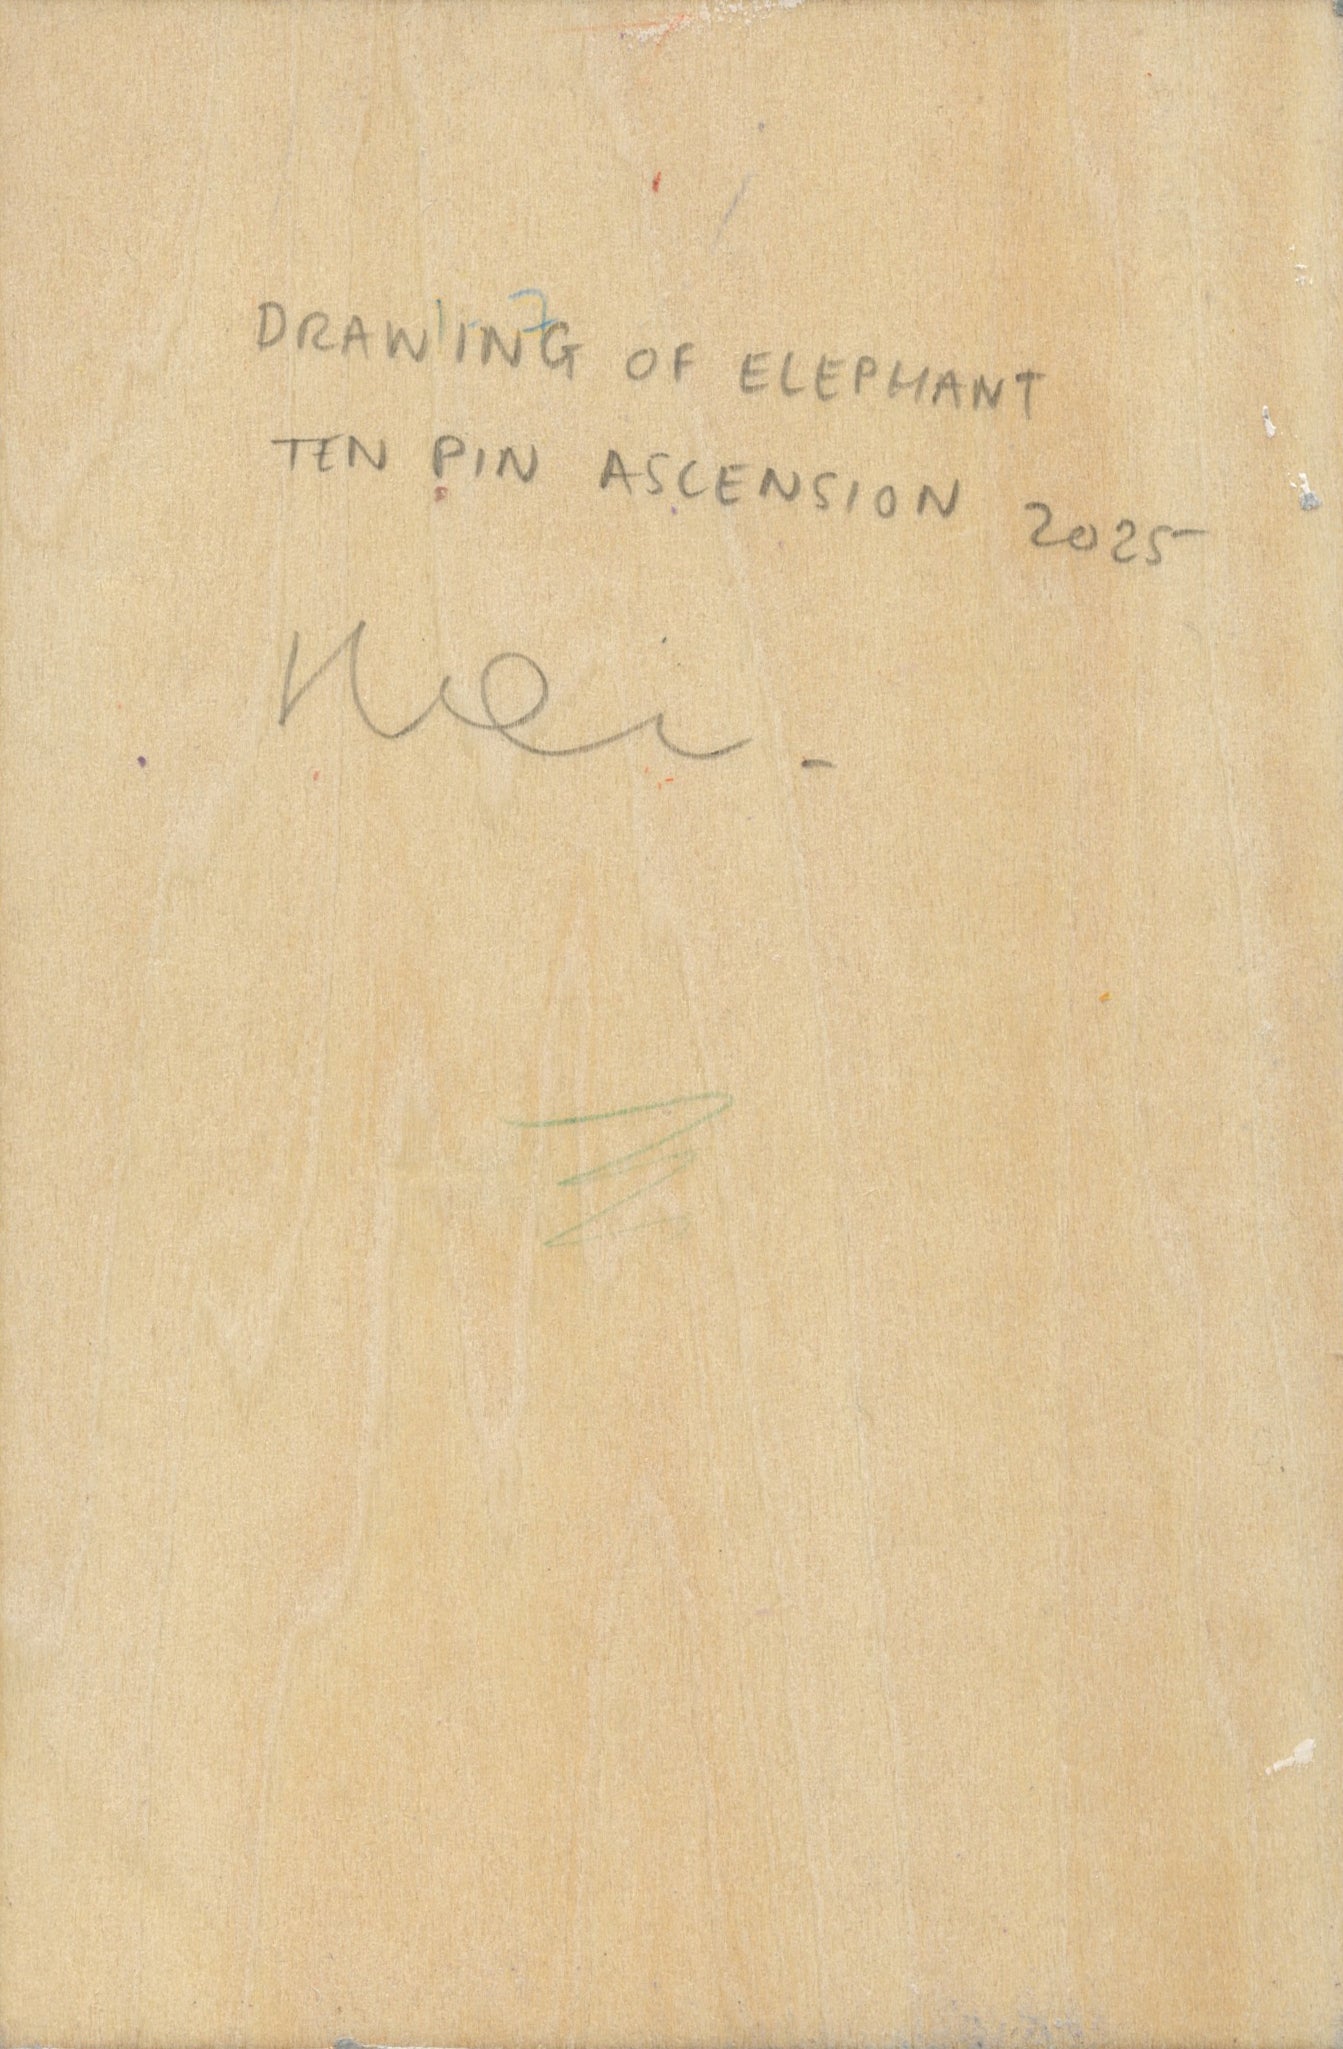 DRAWING OF ELEPHANT
TEN PIN ASCENSION 2025